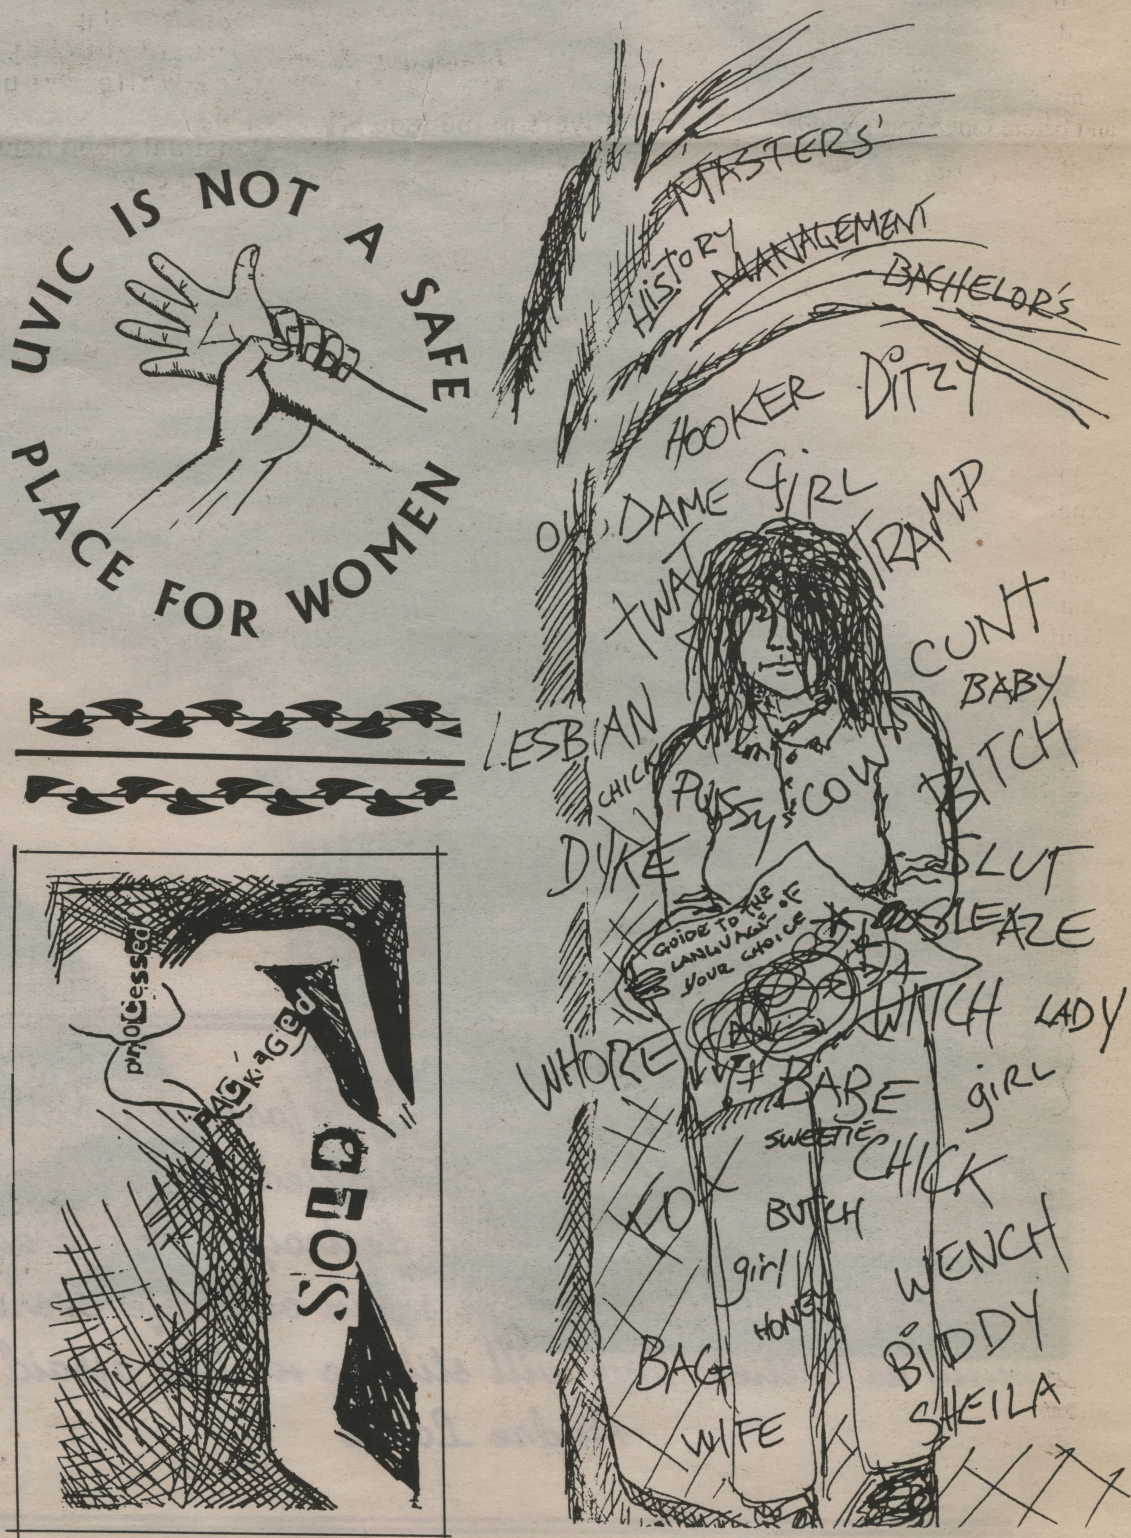 UVIC IS NOT A SAFE
PLACE FOR WOMEN
processed
PACKAGED
SOLD
MASTERS'
HISTORY
MANAGEMENT
BACHELOR'S
HOOKER
DITZY
OH,
DAME
GIRL
TRAMP
TWAT
CUNT
BABY
LESBIAN
BITCH
CHICK
PUSSY
COW
DYKE
SLUT
GUIDE TO THE
LANGUAGE OF
YOUR CHOICE
SLEAZE
WITCH
LADY
WHORE
BABE
girl
SWEETIE
CHICK
FOX
BUTCH
WENCH
girl
HONEY
BAG
BIDDY
SHEILA
WIFE